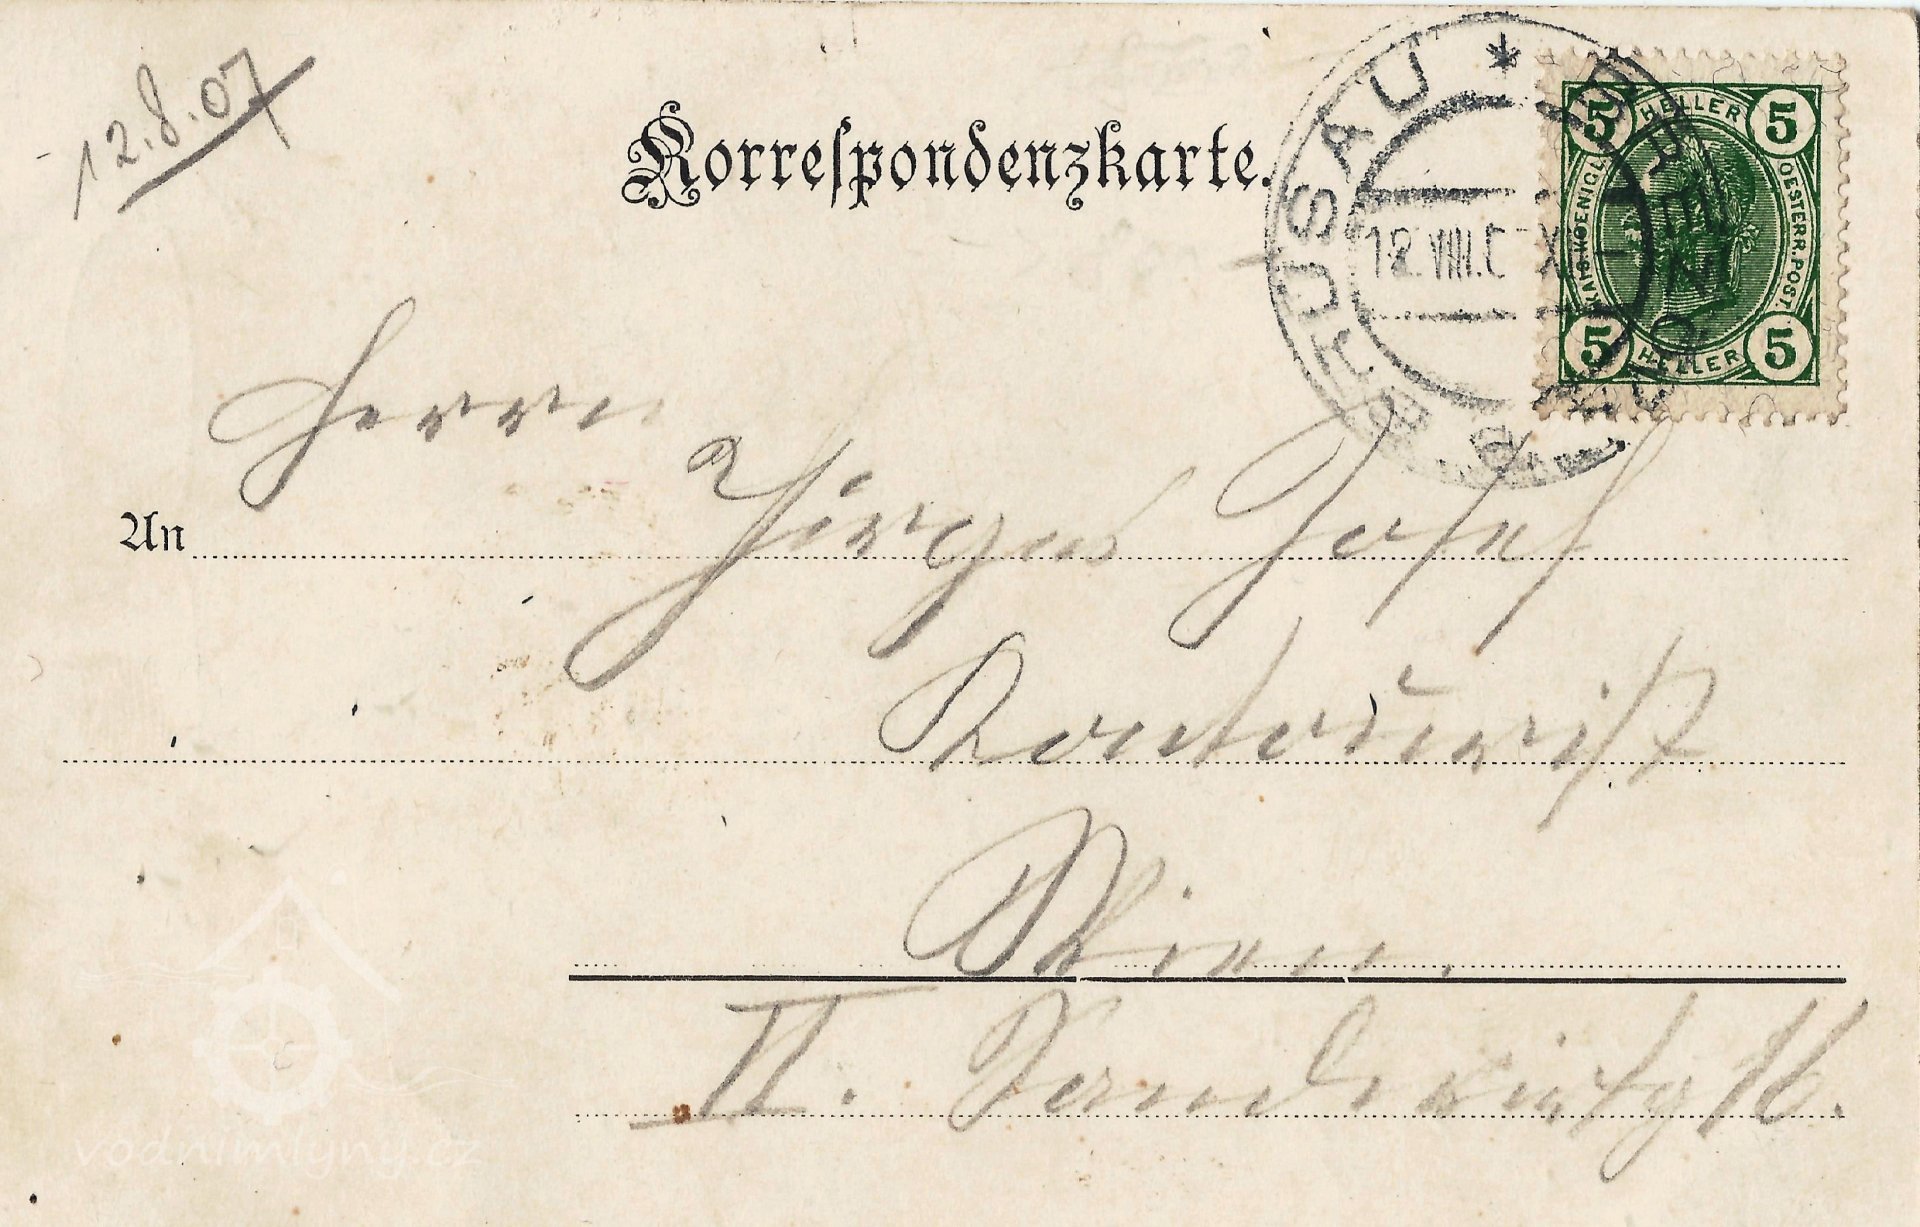 12.8.07
Korrespondenzkarte.
BRÜSAU * BŘEZOVÁ
12.VIII.0 X
5 HELLER 5
KAIS. KOENIGL. OESTERR. POST.
5 HELLER 5
Herrn
An Jirges Josef
Kontourist
Wien.
II.
vodnimlyny.cz